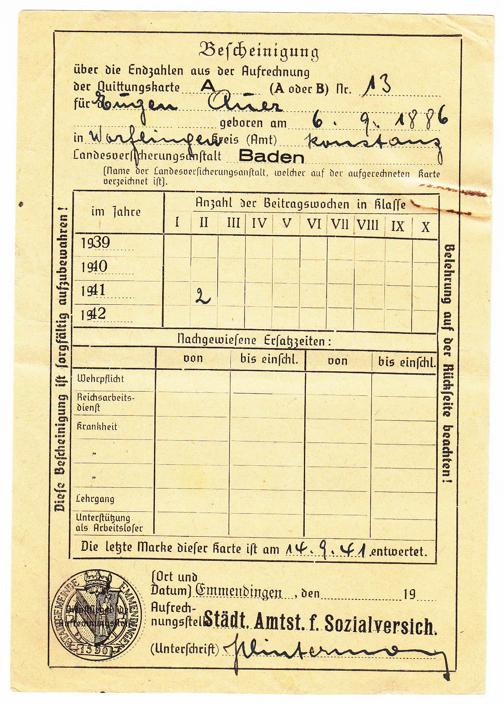 Bescheinigung
über die Endzahlen aus der Aufrechnung
der Quittungskarte A (A oder B) Nr. 13
für Eugen Auer
geboren am 6. 9. 1886
in Worblingen Kreis (Amt) Konstanz
Landesversicherungsanstalt Baden
(Name der Landesversicherungsanstalt, welcher auf der aufgerechneten Karte
verzeichnet ist).
im Jahre Anzahl der Beitragswochen in Klasse
I II III IV V VI VII VIII IX X
1939
1940
1941 2
1942
Nachgewiesene Ersatzzeiten:
von bis einschl. von bis einschl.
Wehrpflicht
Reichsarbeits-
dienst
Krankheit
"
"
Lehrgang
Unterstützung
als Arbeitsloser
Die letzte Marke dieser Karte ist am 14. 9. 41 entwertet.
Diese Bescheinigung ist sorgfältig aufzubewahren!
Belehrung auf der Rückseite beachten!
(Ort und
Datum) Emmendingen, den 19
Aufrech-
nungsstelle Städt. Amtst. f. Sozialversich.
(Unterschrift)
EMMENDINGEN
1590